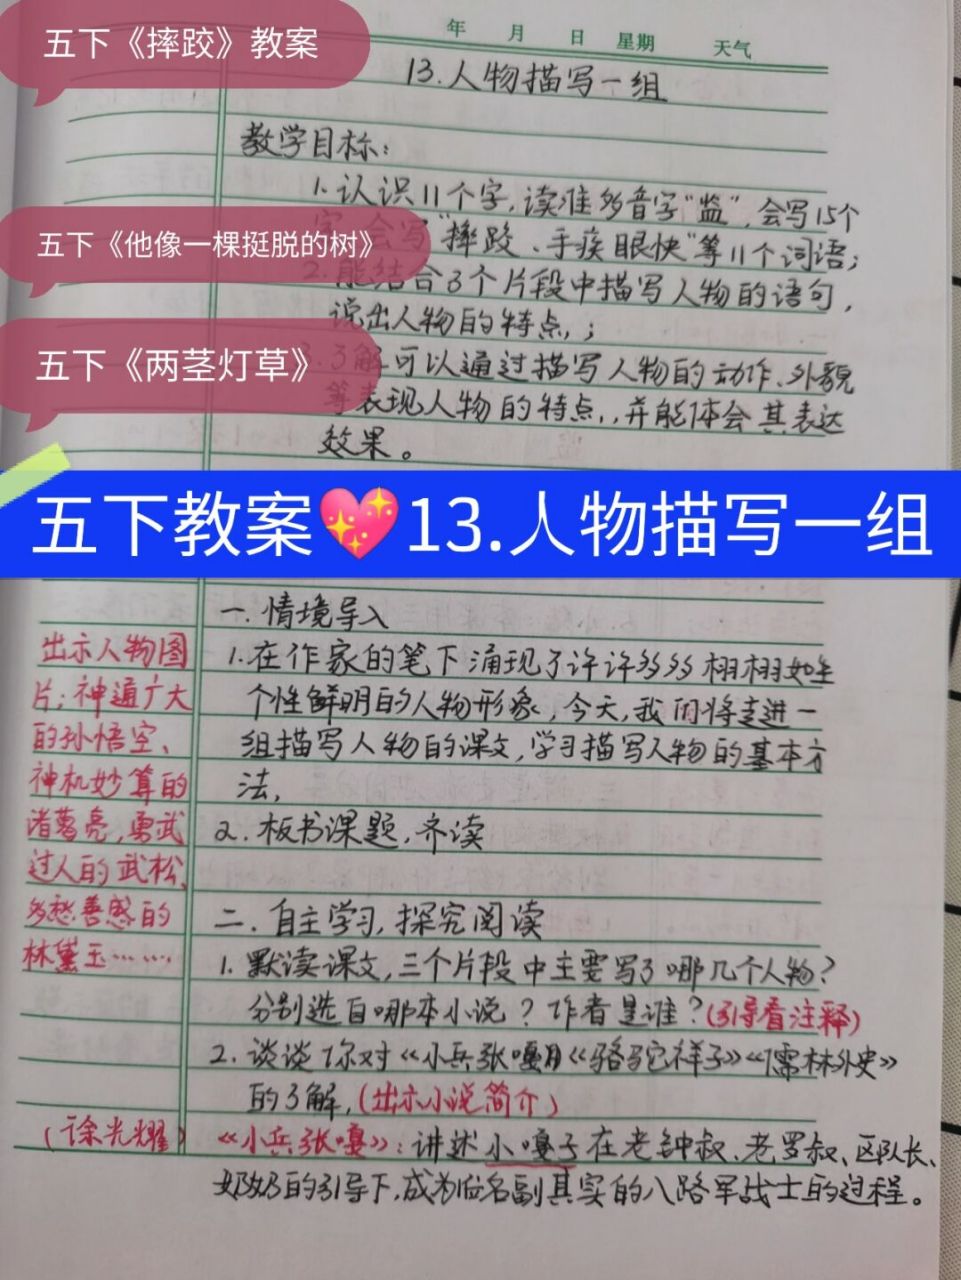 五下《摔跤》教案
年 月 日 星期 天气
13.人物描写一组
教学目标：
1.认识11个字,读准多音字"监",会写15个
字,会写"摔跤、手疾眼快"等11个词语；
五下《他像一棵挺脱的树》
2.能结合3个片段中描写人物的语句,
说出人物的特点,；
五下《两茎灯草》
3.了解可以通过描写人物的动作、外貌
等表现人物的特点,,并能体会其表达
效果。
五下教案💖13.人物描写一组
一.情境导入
1.在作家的笔下涌现了许许多多栩栩如生
个性鲜明的人物形象,今天,我们将走进一
组描写人物的课文,学习描写人物的基本方
法,
2.板书课题,齐读
出示人物图
片；神通广大
的孙悟空、
神机妙算的
诸葛亮,勇武
过人的武松、
多愁善感的
林黛玉……,
二.自主学习,探究阅读
1.默读课文,三个片段中主要写了哪几个人物？
分别选自哪本小说？作者是谁？(引导看注释)
2.谈谈你对《小兵张嘎》《骆驼祥子》《儒林外史》
的了解,(出示小说简介)
(徐光耀)
《小兵张嘎》：讲述小嘎子在老钟叔、老罗叔、区队长、
奶奶的引导下,成为一名名副其实的八路军战士的过程。